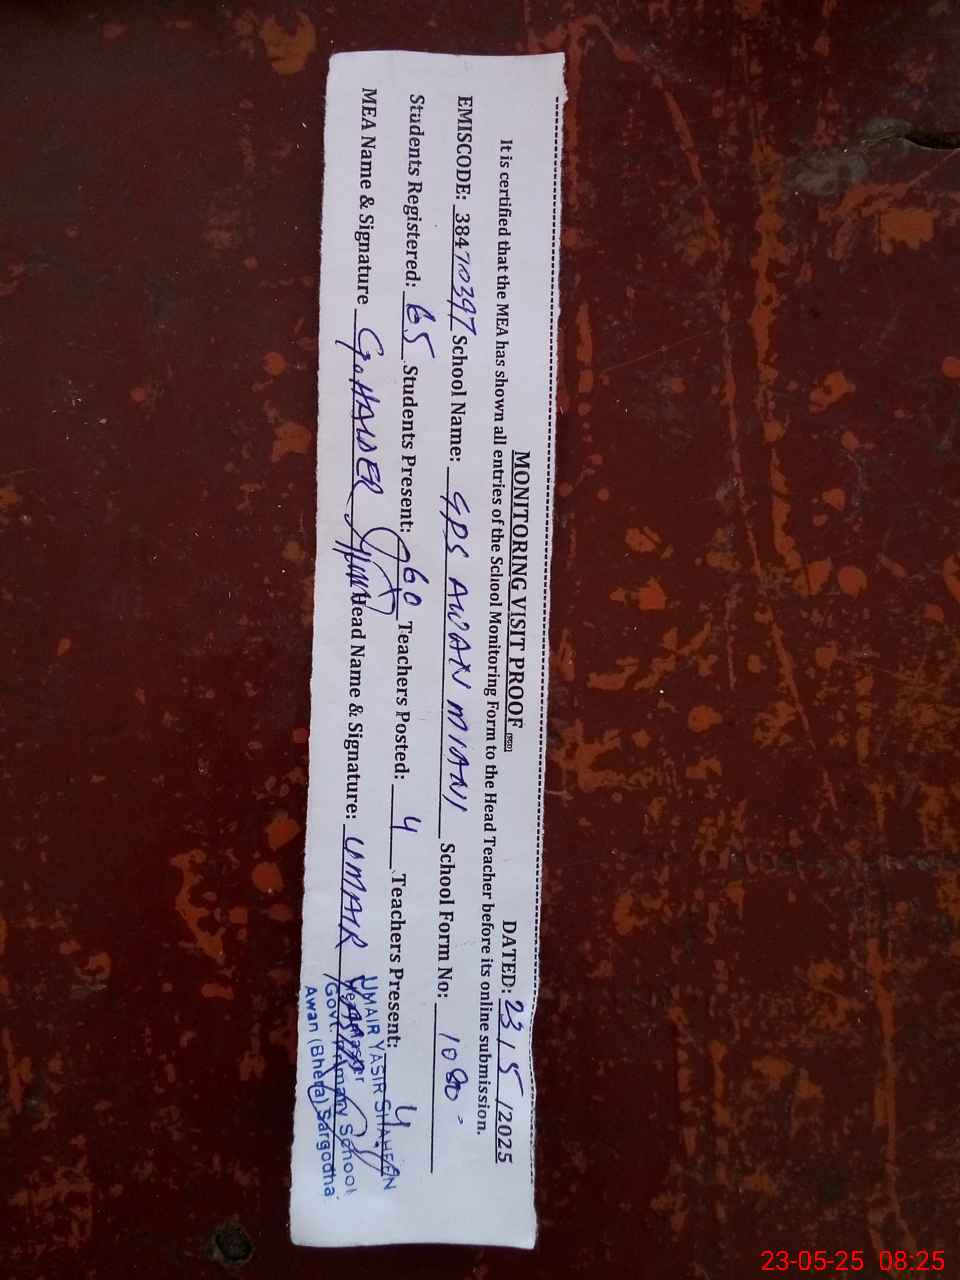 MONITORING VISIT PROOF DATED: 23/5/2025
It is certified that the MEA has shown all entries of the School Monitoring Form to the Head Teacher before its online submission.
EMISCODE: 38470397 School Name: GPS AWAN MIANI School Form No: 1080
Students Registered: 65 Students Present: 60 Teachers Posted: 4 Teachers Present: 4
MEA Name & Signature G. HAIDER Head Name & Signature: UMAIR YASIR
UMAIR YASIR SHAHEEN
Headmaster
Govt. Primary School
Awan (Bhera) Sargodha
23-05-25 08:25